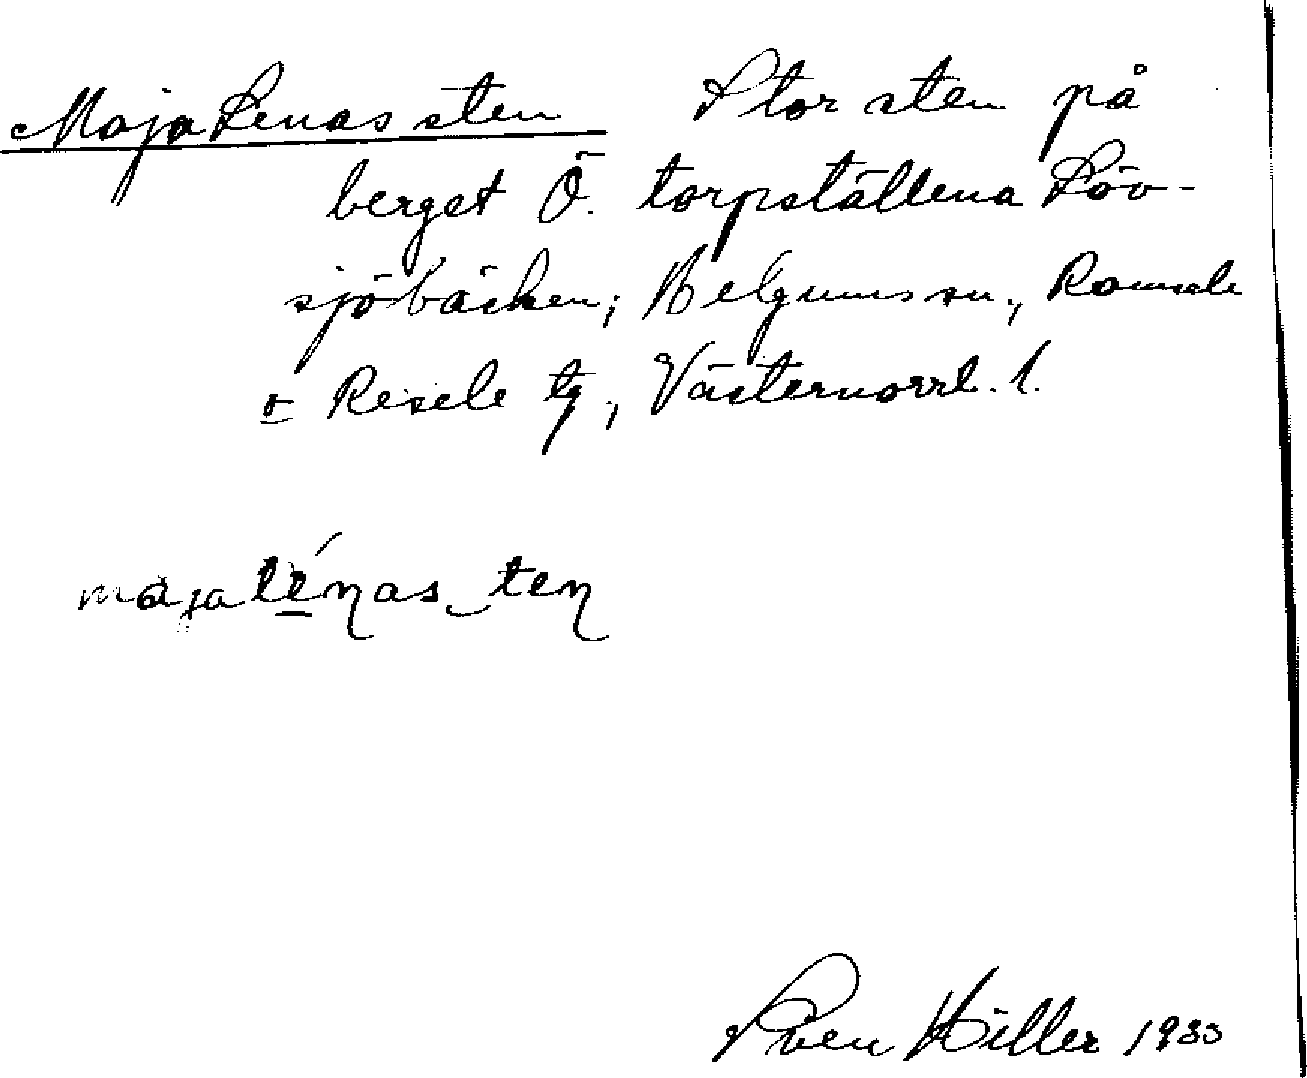 Maja Lenas sten Stor sten på
berget Ö. torpställena Löv-
sjöbäcken; Helgums sn., Ramsele
o Resele tg, Västernorrl. l.
majalénas ten
Sven Hiller 1933